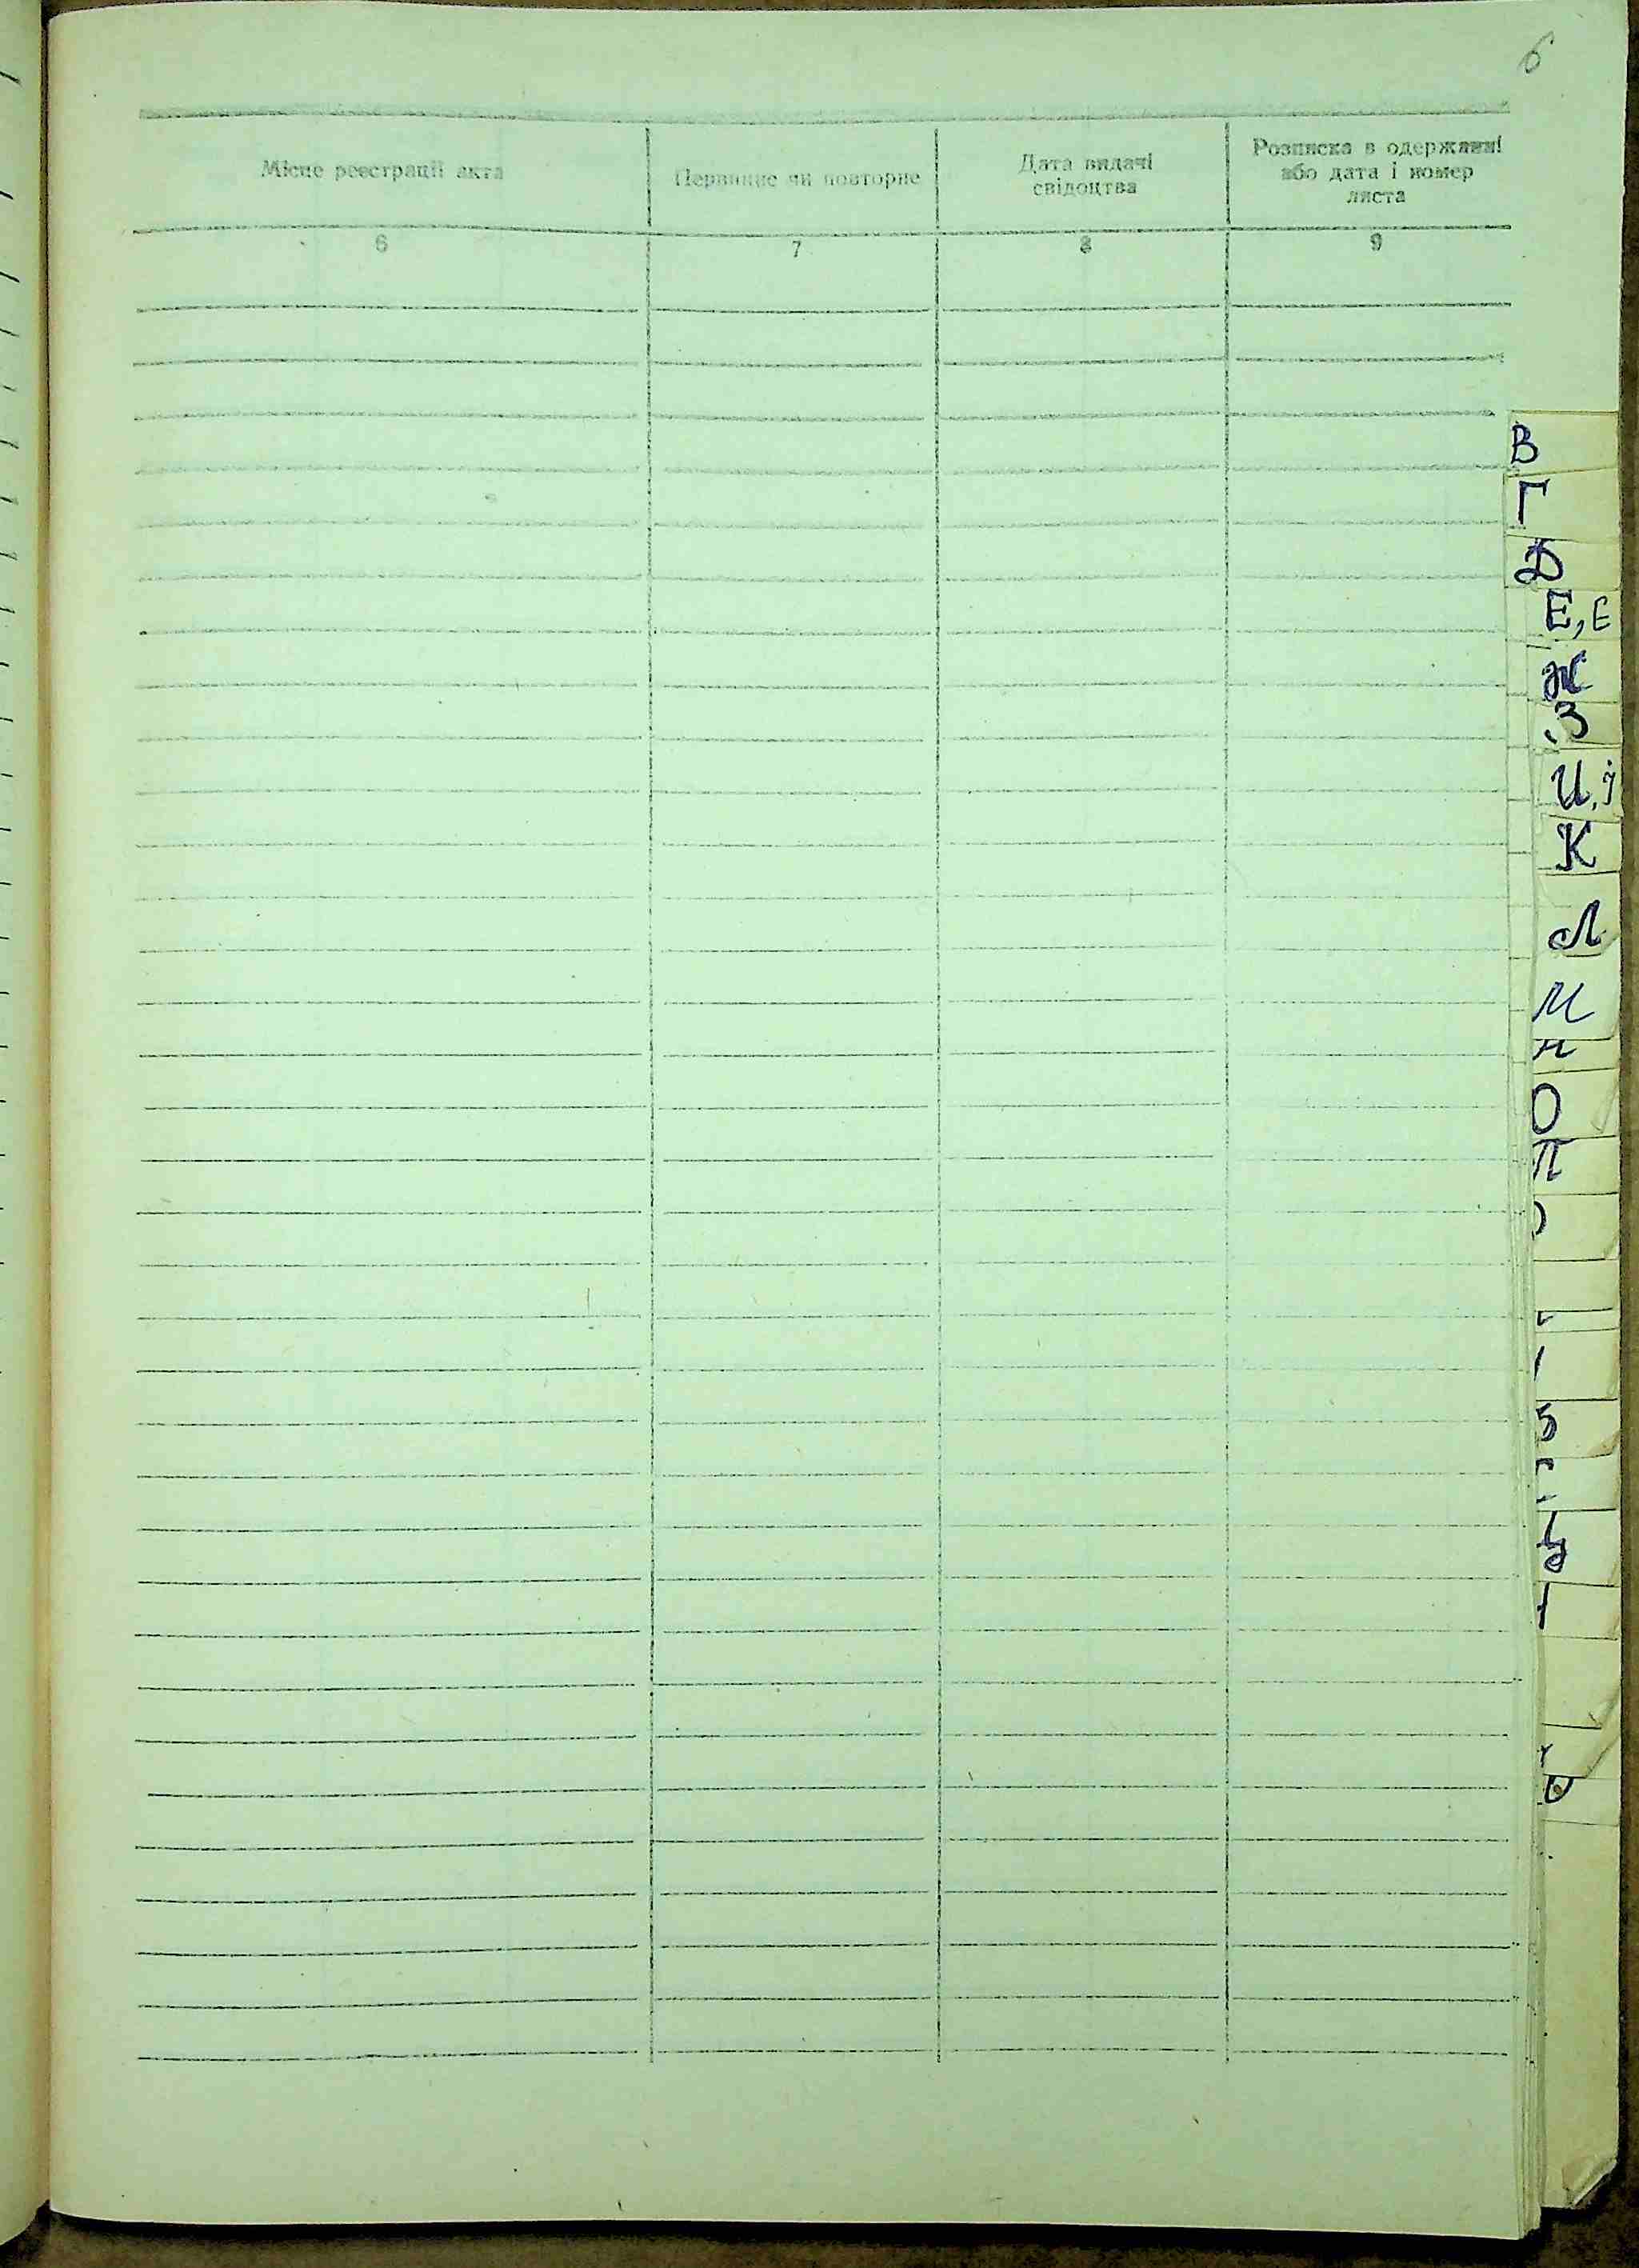 6
Місце реєстрації акта
Первинне чи повторне
Дата видачі
свідоцтва
Розписка в одержанні
або дата і номер
листа
6
7
8
9
В
Г
Д
Е, Є
Ж
З
И, І
К
Л
М
Н
О
П